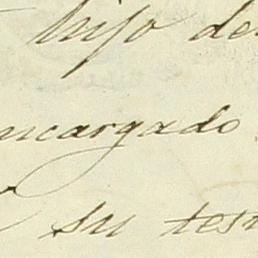 hijo de
ncargado
su test